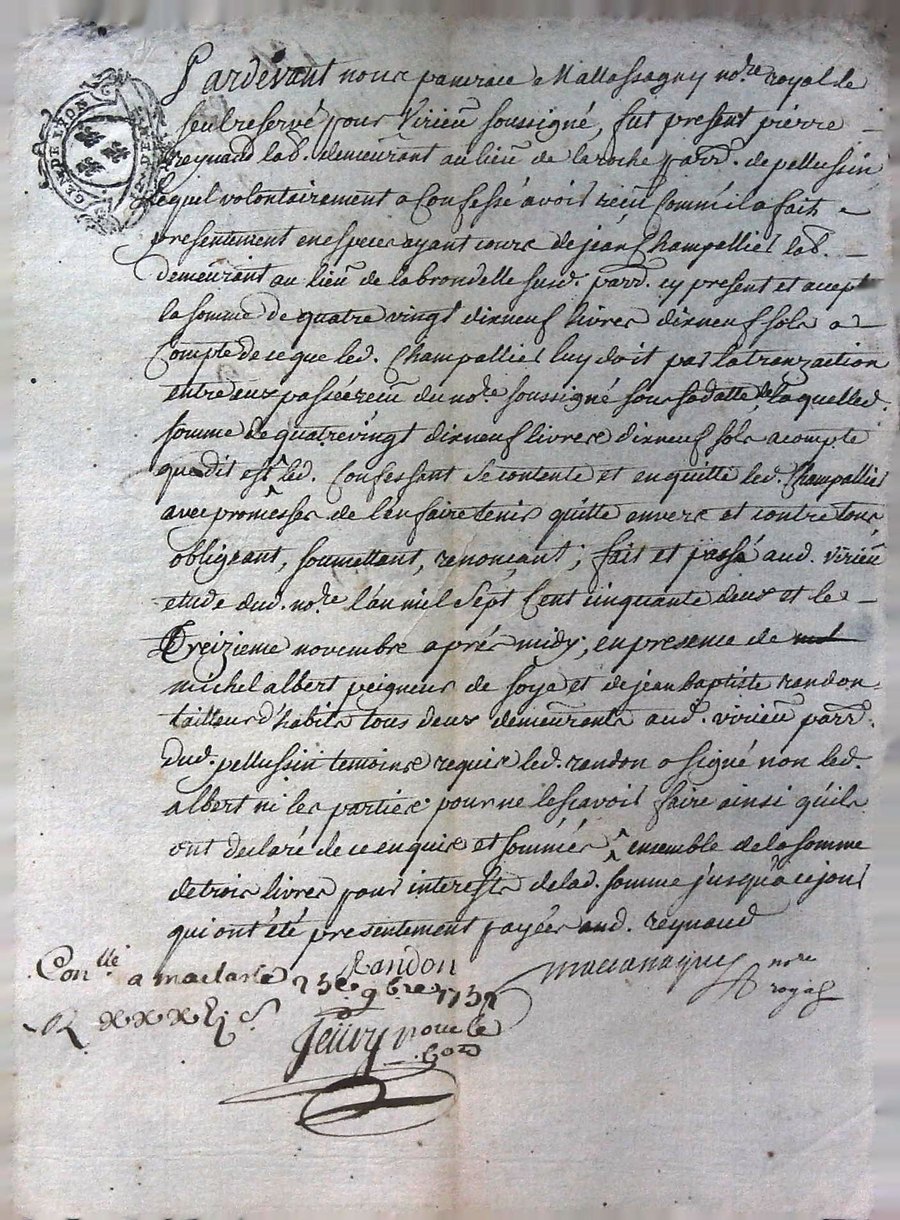 GEN. DE LYON
Pardevant nous pancrace Mallassagny no.re royal le
seul reservé pour Virieu soussigné, fut present pierre
Reynaud lab. demeurant au lieu de la roche parr. de pellussin
Lequel volontairement a Confessé avoir reçu Comme il a fait
presentement en especes ayant cours de jean Champallier lab.
demeurant au lieu de labrondelle susd. parr. cy present et accept
la somme de quatre vingt dixneuf livres dixneuf sols a
Compte de ce que led. Champallier luy doit par la tranzaction
entre eux passée reçue du no.re soussigné sous sa datte de laquelled.
somme de quatrevingt dixneuf livres dixneuf sols acompte
que dit est led. Confessant se contente et en quitte led. Champallier
avec promesses de l'en faire tenir quitte envers et contre tous
obligeant, soumettant, renonçant; fait et passé aud. virieu
etude dud. no.re l'an mil sept Cent cinquante deux et le
Treizieme novembre aprés midy, en presence de
michel albert peigneur de soye et de jean baptiste randon
tailleur d'habits tous deux demeurants aud. virieu parr.
dud. pellussin temoins requis led. randon a signé non led.
albert ni les parties pour ne le scavoir faire ainsi qu'ils
ont declaré de ce enquis et sommés ^ ensemble de la somme
de trois livres pour interests de lad. somme jusqu'a ce jour
qui ont été presentement payées aud. reynaud
Randon
no.re royal
Con.llé a maclas le 23e 9bre 1752
R
pour le